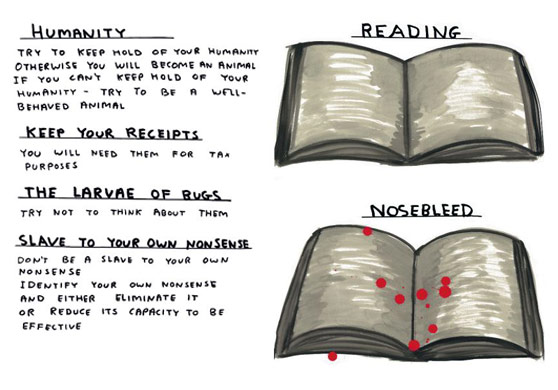 HUMANITY
TRY TO KEEP HOLD OF YOUR HUMANITY
OTHERWISE YOU WILL BECOME AN ANIMAL
IF YOU CAN'T KEEP HOLD OF YOUR
HUMANITY - TRY TO BE A WELL-
BEHAVED ANIMAL
KEEP YOUR RECEIPTS
YOU WILL NEED THEM FOR TAX
PURPOSES
THE LARVAE OF BUGS
TRY NOT TO THINK ABOUT THEM
SLAVE TO YOUR OWN NONSENSE
DON'T BE A SLAVE TO YOUR OWN
NONSENSE
IDENTIFY YOUR OWN NONSENSE
AND EITHER ELIMINATE IT
OR REDUCE ITS CAPACITY TO BE
EFFECTIVE
READING
NOSEBLEED